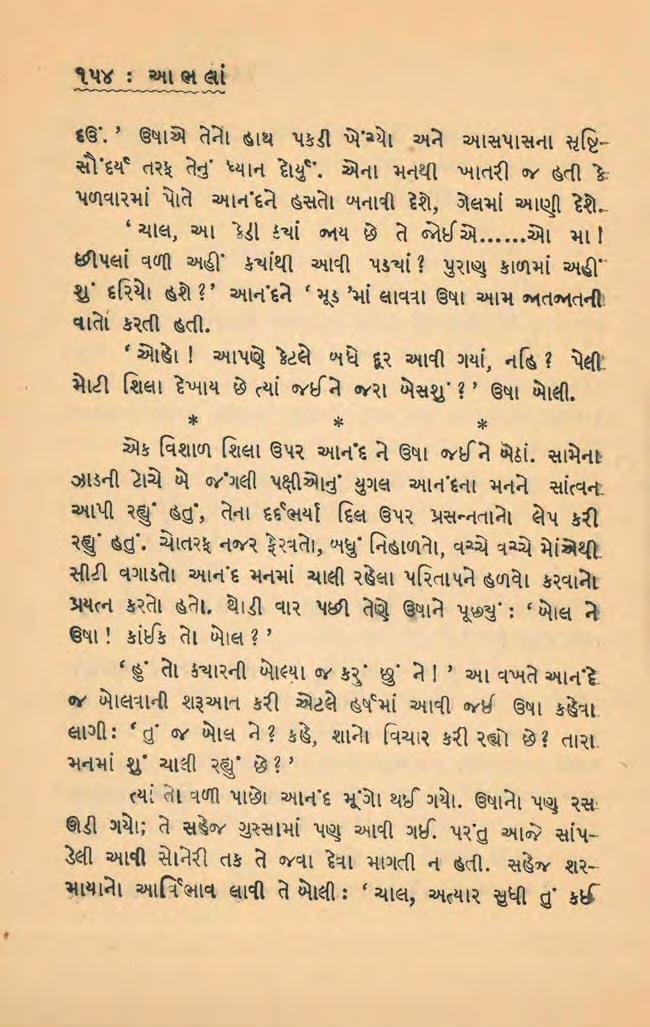 ૧૫૪ : આભલાં
દઉં.’ ઉષાએ તેનો હાથ પકડી ખેંચ્યો અને આસપાસના સૃષ્ટિ-
સૌંદર્ય તરફ તેનું ધ્યાન દોર્યું. એના મનથી ખાતરી જ હતી કે
પળવારમાં પોતે આનંદને હસતો બનાવી દેશે, ગેલમાં આણી દેશે.
‘ચાલ, આ કેડી ક્યાં જાય છે તે જોઈએ......ઓ મા!
છીપલાં વળી અહીં ક્યાંથી આવી પડ્યાં? પુરાણુ કાળમાં અહીં
શું દરિયો હશે?’ આનંદને ‘મૂડ’માં લાવવા ઉષા આમ જાતજાતની
વાતો કરતી હતી.
‘ઓહો! આપણે કેટલે બધે દૂર આવી ગયાં, નહિ? પેલી
મોટી શિલા દેખાય છે ત્યાં જઈને જરા બેસશું?’ ઉષા બોલી.
* * *
એક વિશાળ શિલા ઉપર આનંદ ને ઉષા જઈને બેઠાં. સામેના
ઝાડની ટોચે બે જંગલી પક્ષીઓનું યુગલ આનંદના મનને સાંત્વન
આપી રહ્યું હતું, તેના દર્દભર્યા દિલ ઉપર પ્રસન્નતાનો લેપ કરી
રહ્યું હતું. ચોતરફ નજર ફેરવતો, બધું નિહાળતો, વચ્ચે વચ્ચે મોંએથી
સીટી વગાડતો આનંદ મનમાં ચાલી રહેલા પરિતાપને હળવો કરવાનો
પ્રયત્ન કરતો હતો. થોડી વાર પછી તેણે ઉષાને પૂછ્યું : ‘બોલ ને
ઉષા! કાંઈક તો બોલ?’
‘હું તો ક્યારની બોલ્યા જ કરું છું ને!’ આ વખતે આનંદે
જ બોલવાની શરૂઆત કરી એટલે હર્ષમાં આવી જઈ ઉષા કહેવા
લાગી: ‘તું જ બોલ ને? કહે, શાનો વિચાર કરી રહ્યો છે? તારા
મનમાં શું ચાલી રહ્યું છે?’
ત્યાં તો વળી પાછો આનંદ મૂંગો થઈ ગયો. ઉષાનો પણ રસ
ઊડી ગયો; તે સહેજ ગુસ્સામાં પણ આવી ગઈ. પરંતુ આજે સાંપ-
ડેલી આવી સોનેરી તક તે જવા દેવા માગતી ન હતી. સહેજ શર-
માયાનો આર્વિભાવ લાવી તે બોલી : ‘ચાલ, અત્યાર સુધી તું કઈ